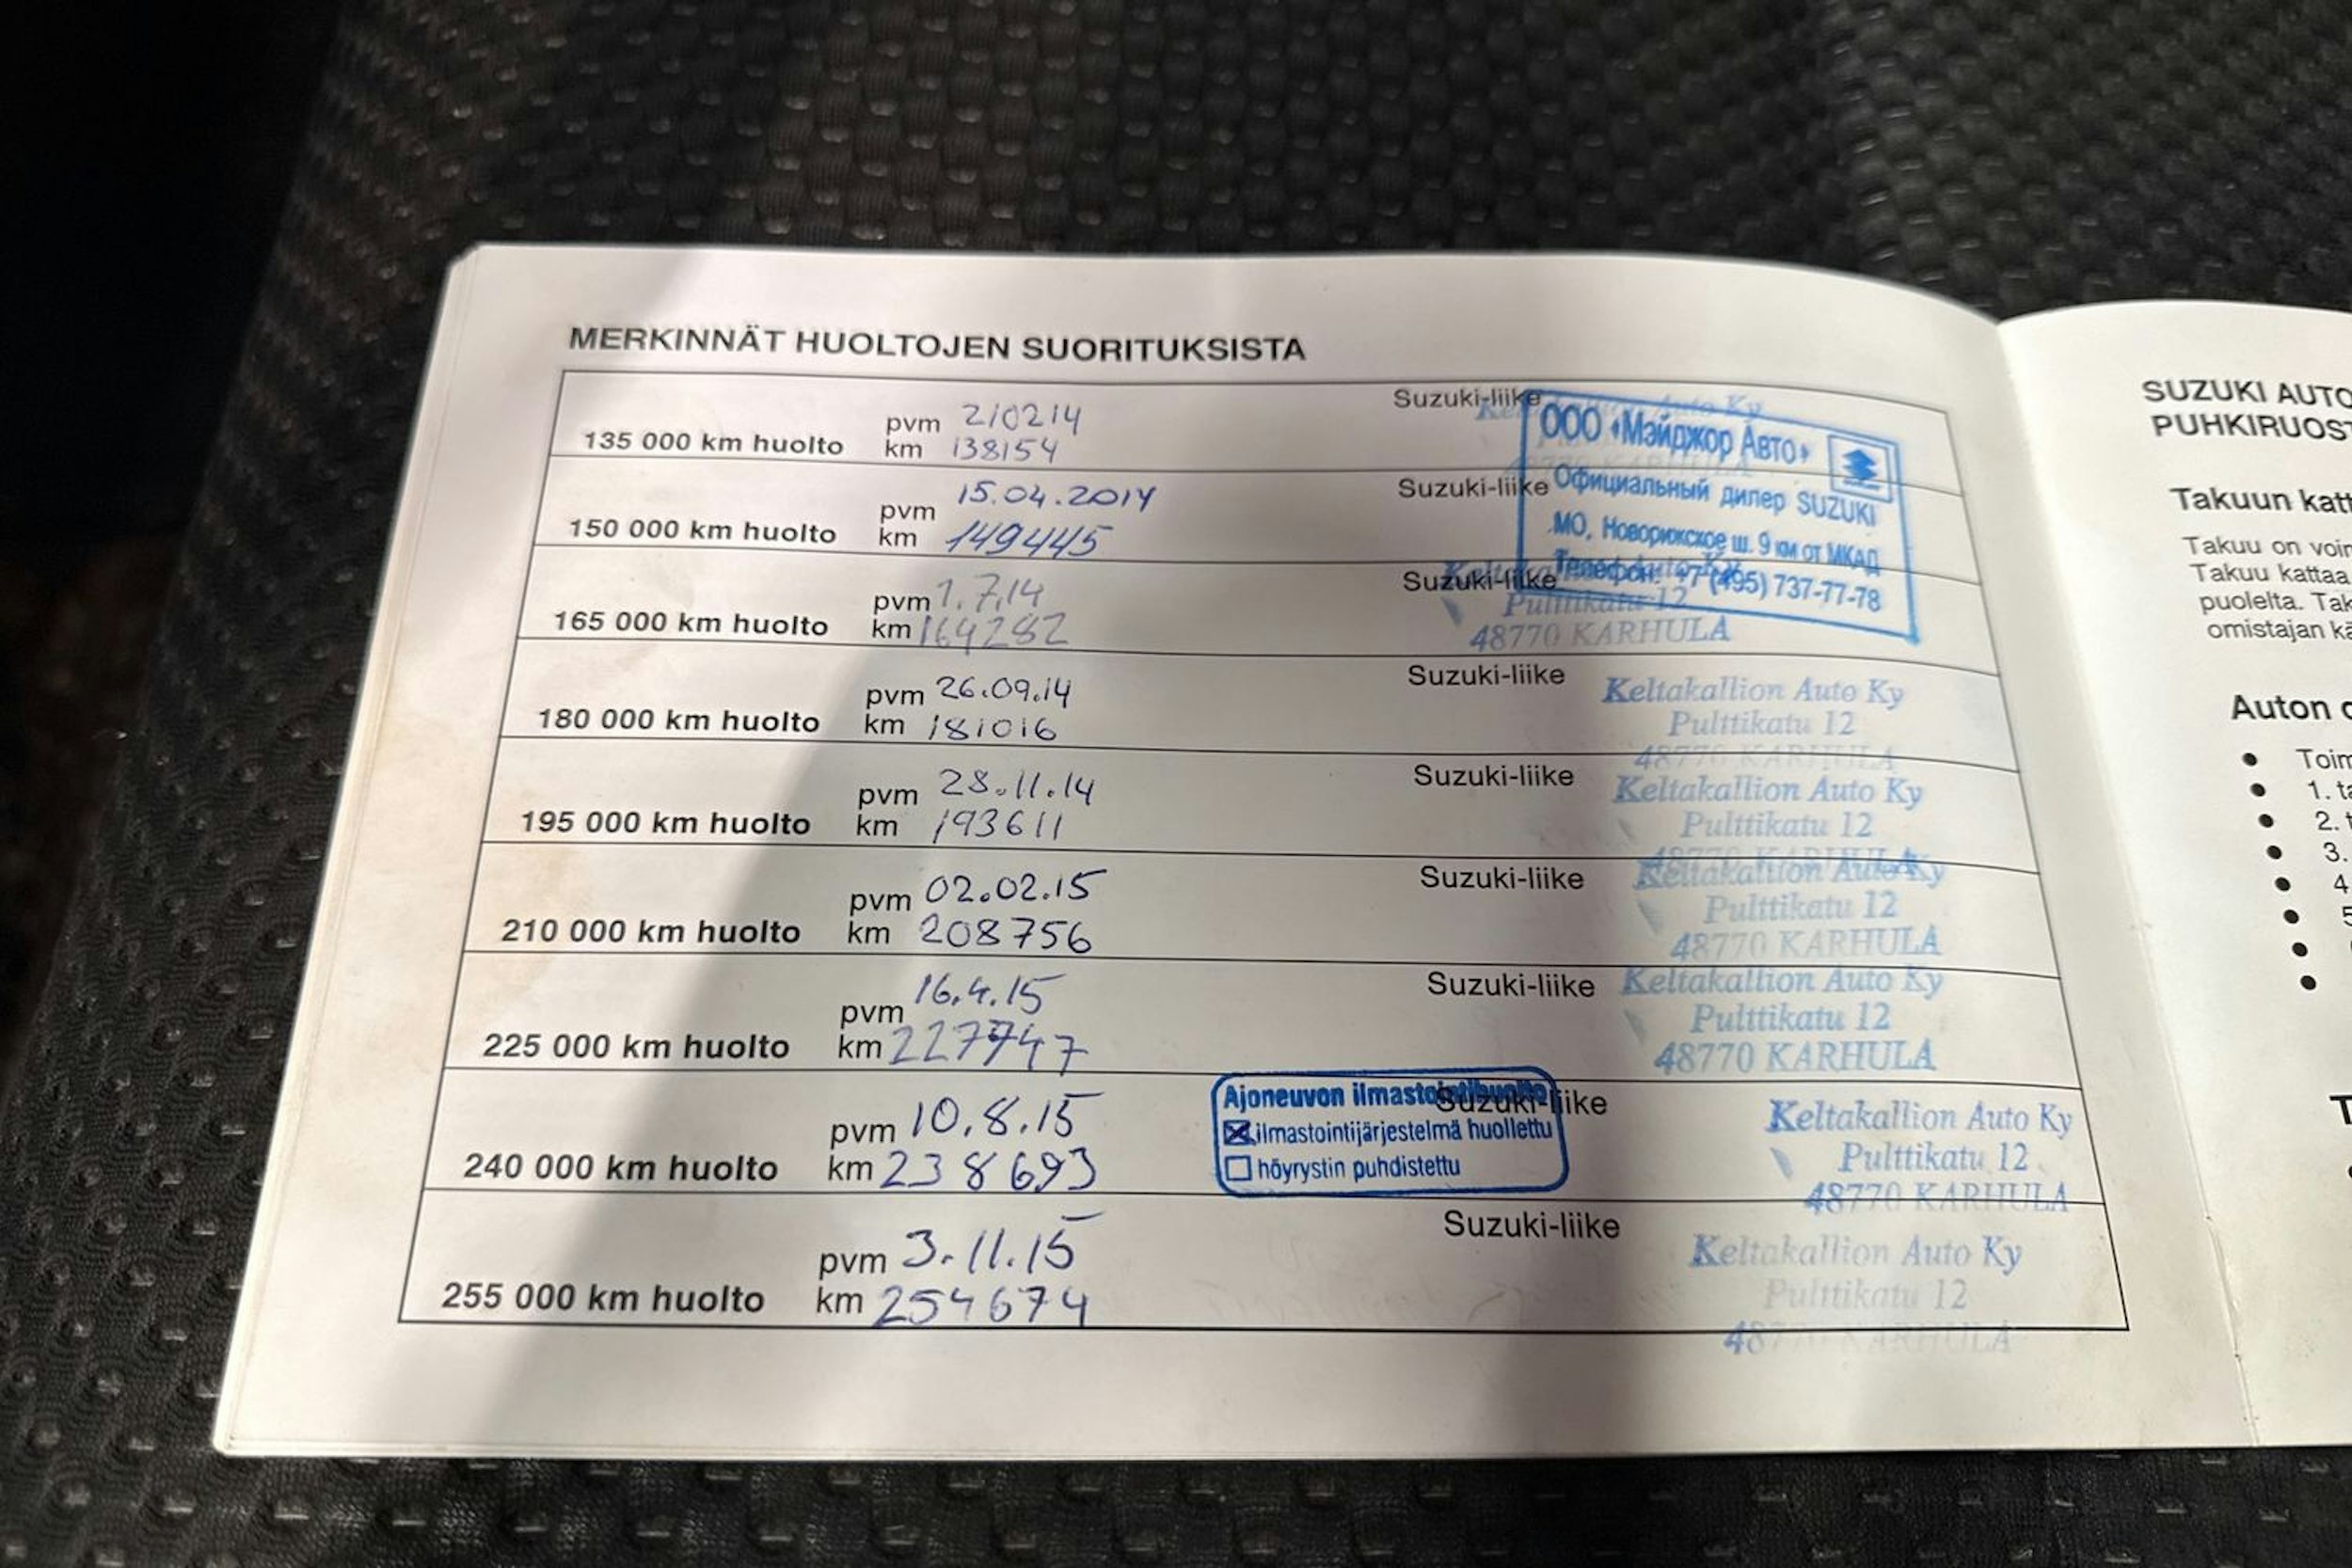 MERKINNÄT HUOLTOJEN SUORITUKSISTA
135 000 km huolto
pvm 210214
km 138154
Suzuki-liike
Keltakallion Auto Ky
48770 KARHULA
ООО «Мэйджор Авто»
Официальный дилер SUZUKI
МО, Новорижское ш. 9 км от МКАД
Телефон: +7 (495) 737-77-78
150 000 km huolto
pvm 15.04.2014
km 149445
Suzuki-liike
165 000 km huolto
pvm 1.7.14
km 164282
Suzuki-liike
Keltakallion Auto Ky
Pulttikatu 12
48770 KARHULA
180 000 km huolto
pvm 26.09.14
km 181016
Suzuki-liike
Keltakallion Auto Ky
Pulttikatu 12
48770 KARHULA
195 000 km huolto
pvm 28.11.14
km 193611
Suzuki-liike
Keltakallion Auto Ky
Pulttikatu 12
48770 KARHULA
210 000 km huolto
pvm 02.02.15
km 208756
Suzuki-liike
Keltakallion Auto Ky
Pulttikatu 12
48770 KARHULA
225 000 km huolto
pvm 16.4.15
km 227747
Suzuki-liike
Keltakallion Auto Ky
Pulttikatu 12
48770 KARHULA
240 000 km huolto
pvm 10.8.15
km 238693
Ajoneuvon ilmastointihuolto
ilmastointijärjestelmä huollettu
höyrystin puhdistettu
Suzuki-liike
Keltakallion Auto Ky
Pulttikatu 12
48770 KARHULA
255 000 km huolto
pvm 3.11.15
km 254674
Suzuki-liike
Keltakallion Auto Ky
Pulttikatu 12
48770 KARHULA
SUZUKI AUTO
PUHKIRUOST
Takuun katt
Takuu on voin
Takuu kattaa
puolelta. Tak
omistajan kä
Auton
Toim
1. ta
2. t
3.
4
5